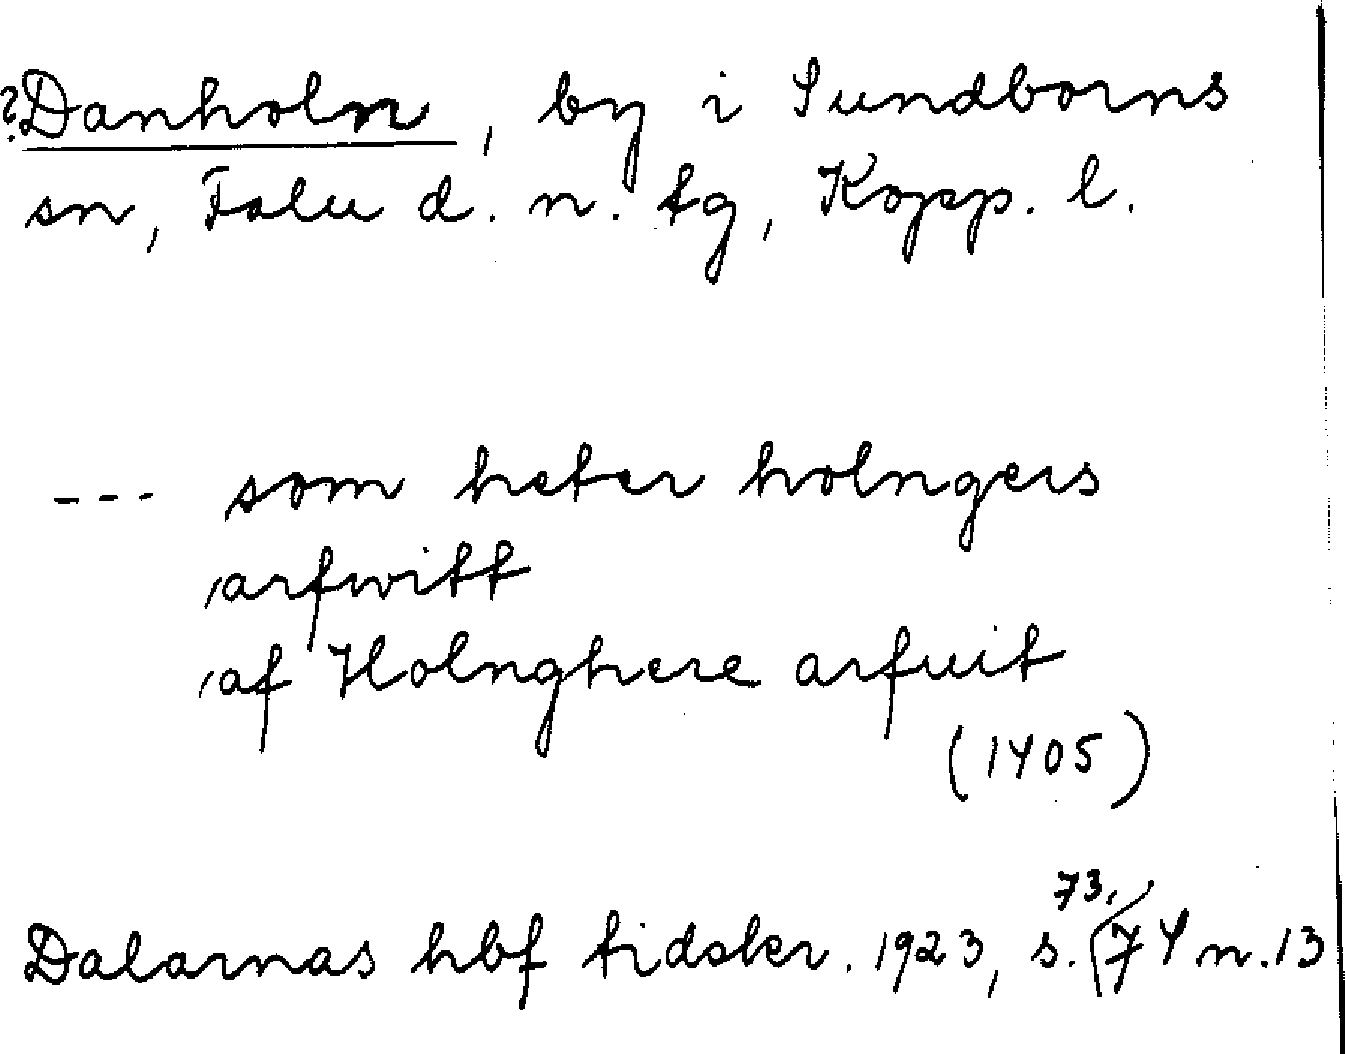 ?Danholn, by i Sundborns
sn, Falu d. n. tg, Kopp. l.
--- som heter holngers
arfwitt
af Holnghere arfuit
(1405)
73,
Dalarnas hbf tidskr. 1923, s. 74 n. 13